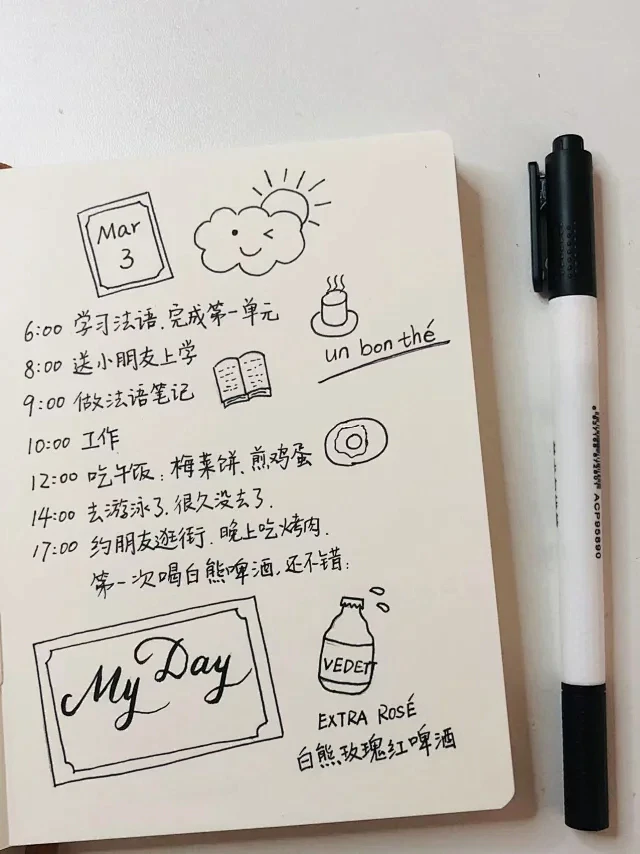 Mar
3
6:00 学习法语.完成第一单元
8:00 送小朋友上学
un bon thé
9:00 做法语笔记
10:00 工作
12:00 吃午饭:梅菜饼、煎鸡蛋
14:00 去游泳了.很久没去了.
17:00 约朋友逛街.晚上吃烤肉.
第一次喝白熊啤酒,还不错:
My Day
VEDETT
EXTRA ROSÉ
白熊玫瑰红啤酒
ACP95890